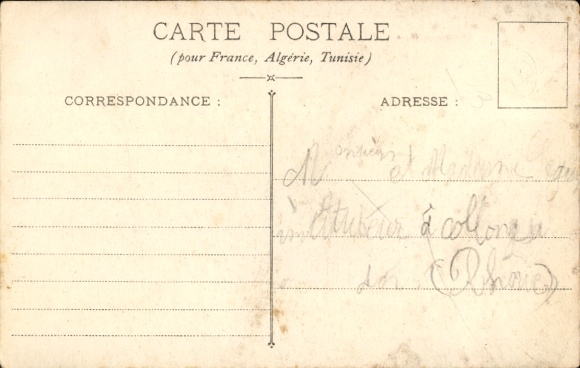 CARTE POSTALE
(pour France, Algérie, Tunisie)
CORRESPONDANCE :
ADRESSE :
Monsieur et Madame
à collona
dor (Rhône)